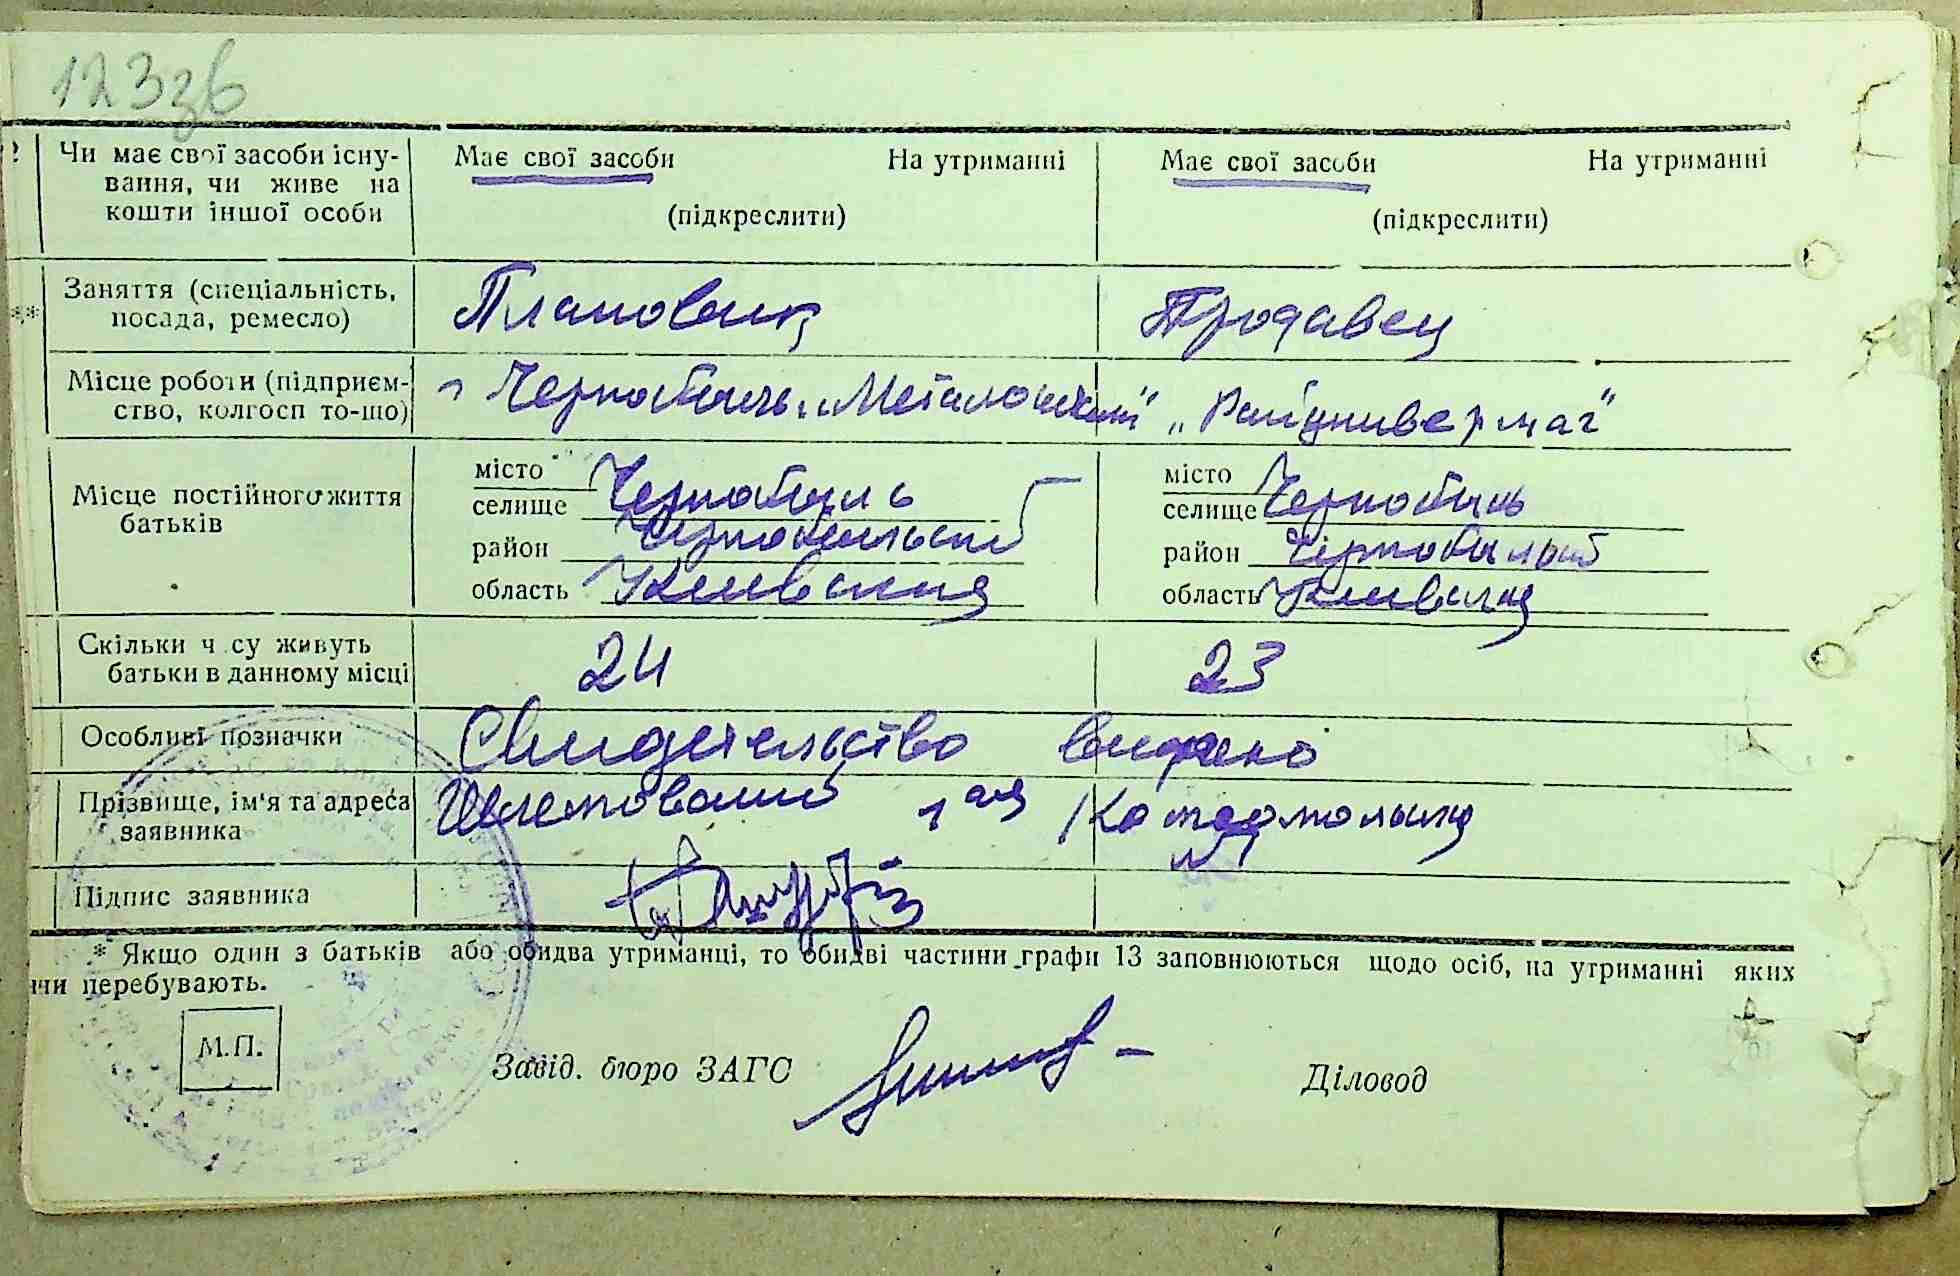 123зб
Чи має свої засоби існу-
вання, чи живе на
кошти іншої особи
Має свої засоби На утриманні
(підкреслити)
Має свої засоби На утриманні
(підкреслити)
Заняття (спеціальність,
посада, ремесло)
Плановик
Продавец
Місце роботи (підприєм-
ство, колгосп то-що)
г Чернобыль
„Райунивермаг"
Місце постійного життя
батьків
місто
селище Чернобыль
район Чернобыльский
область Киевская
місто
селище Чернобыль
район Чернобыльский
область Киевская
Скільки ч су живуть
батьки в данному місці
24
23
Особливі позначки
Свидетельство выдано
Прізвище, ім'я та адреса
заявника
1ая
Підпис заявника
* Якщо один з батьків або обидва утриманці, то обидві частини графи 13 заповнюються щодо осіб, на утриманні яких
ни перебувають.
М.П.
Завід. бюро ЗАГС
Діловод